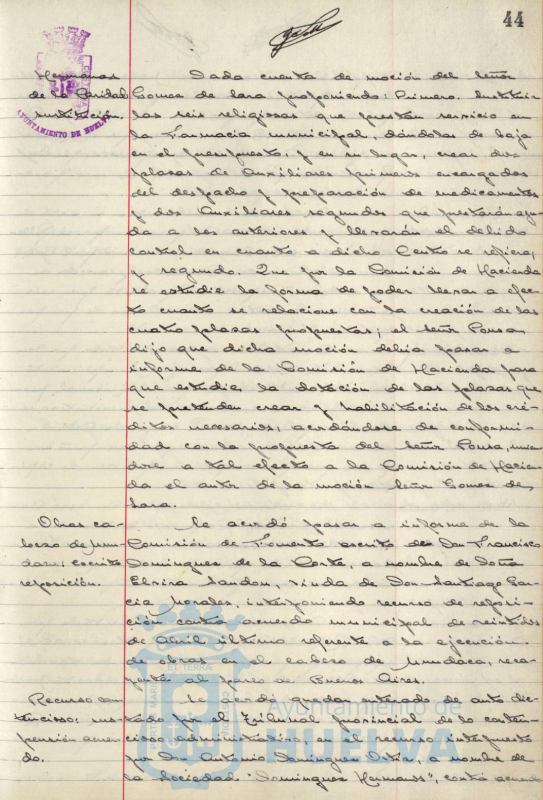 44
Hermanas
de la Caridad
sustitución.
AYUNTAMIENTO DE HUELVA
Dada cuenta de moción del señor
Gomez de Lara proponiendo: Primero. Sustituir
las seis religiosas que prestan servicio en
la Farmacia municipal, dándolas de baja
en el presupuesto, y en su lugar, crear dos
plazas de Auxiliares primeros encargados
del despacho y preparación de medicamentos
y dos Auxiliares segundos que prestarán ayu-
da a los anteriores y llevarán el debido
control en cuanto a dicho Centro se refiera;
y segundo. Que por la Comisión de Hacienda
se estudie la forma de poder llevar a efec-
to cuanto se relacione con la creación de las
cuatro plazas propuestas; el señor Pousa
dijo que dicha moción debia pasar a
informe de la Comisión de Hacienda para
que estudie la dotación de las plazas que
se pretenden crear y habilitación de los cré-
ditos necesarios, acordándose de conformi-
dad con la propuesta del señor Pousa, unien-
dose a tal efecto a la Comisión de Hacien-
da el autor de la moción señor Gomez de
Lara.
Obras ca-
bezo de Mun-
daca: escrito
reposición.
Se acordó pasar a informe de la
Comisión de Fomento escrito de Don Francisco
Dominguez de la Corte, a nombre de Doña
Elvira Landon, viuda de Don Santiago Gar-
cia Morales, interponiendo recurso de reposi-
ción contra acuerdo municipal de veintidos
de Abril último referente a la ejecución
de obras en el cabezo de Mundaca, reca-
yente al paseo de Buenos Aires.
Recurso con-
tencioso: sus-
pensión acuer-
do.
Se acordó quedar enterado de auto dic-
tado por el Tribunal provincial de lo conten-
cioso administrativo, en el recurso interpuesto
por Don Antonio Dominguez Ortiz, a nombre de
la Sociedad "Dominguez Hermanos", contra acuerdo
Ayuntamiento de
HUELVA